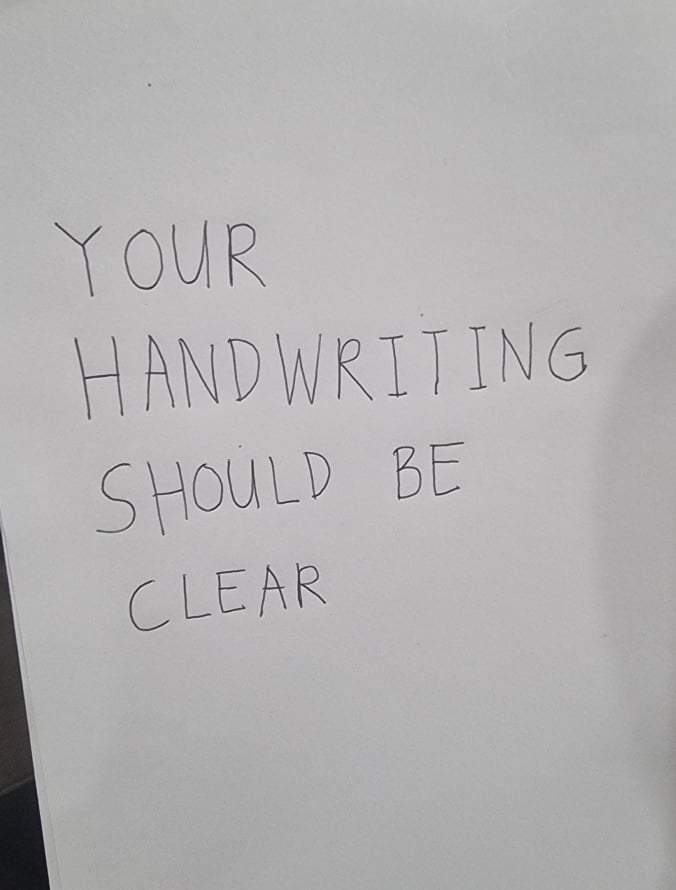 YOUR
HANDWRITING
SHOULD BE
CLEAR